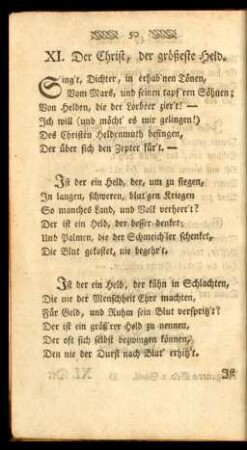 50
XI. Der Christ, der größeste Held.
Sing't, Dichter, in erhab'nen Tönen,
Vom Mars, und seinen tapf'ren Söhnen;
Von Helden, die der Lorbeer zier't! —
Ich will (und möcht' es mir gelingen!)
Des Christen Heldenmuth besingen,
Der über sich den Zepter für't. —
Ist der ein Held, der, um zu siegen,
In langen, schweren, blut'gen Kriegen
So manches Land, und Volk verheer't?
Der ist ein Held, der besser denket;
Und Palmen, die der Schmeich'ler schenket,
Die Blut gekostet, nie begehr't.
Ist der ein Held, der kühn in Schlachten,
Die nie der Menschheit Ehre machten,
Für Geld, und Ruhm sein Blut verspritz't?
Der ist ein größ'rer Held zu nennen,
Der oft sich selbst bezwingen können,
Den nie der Durst nach Blut' erhitz't.
Ist